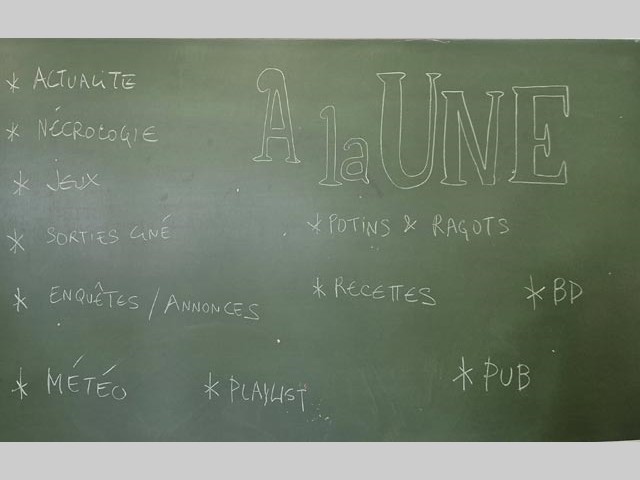 A la UNE
* ACTUALITE
* NÉCROLOGIE
* JEUX
* SORTIES CINÉ
* POTINS & RAGOTS
* ENQUÊTES / ANNONCES
* RECETTES
* BD
* MÉTÉO
* PLAYLIST
* PUB